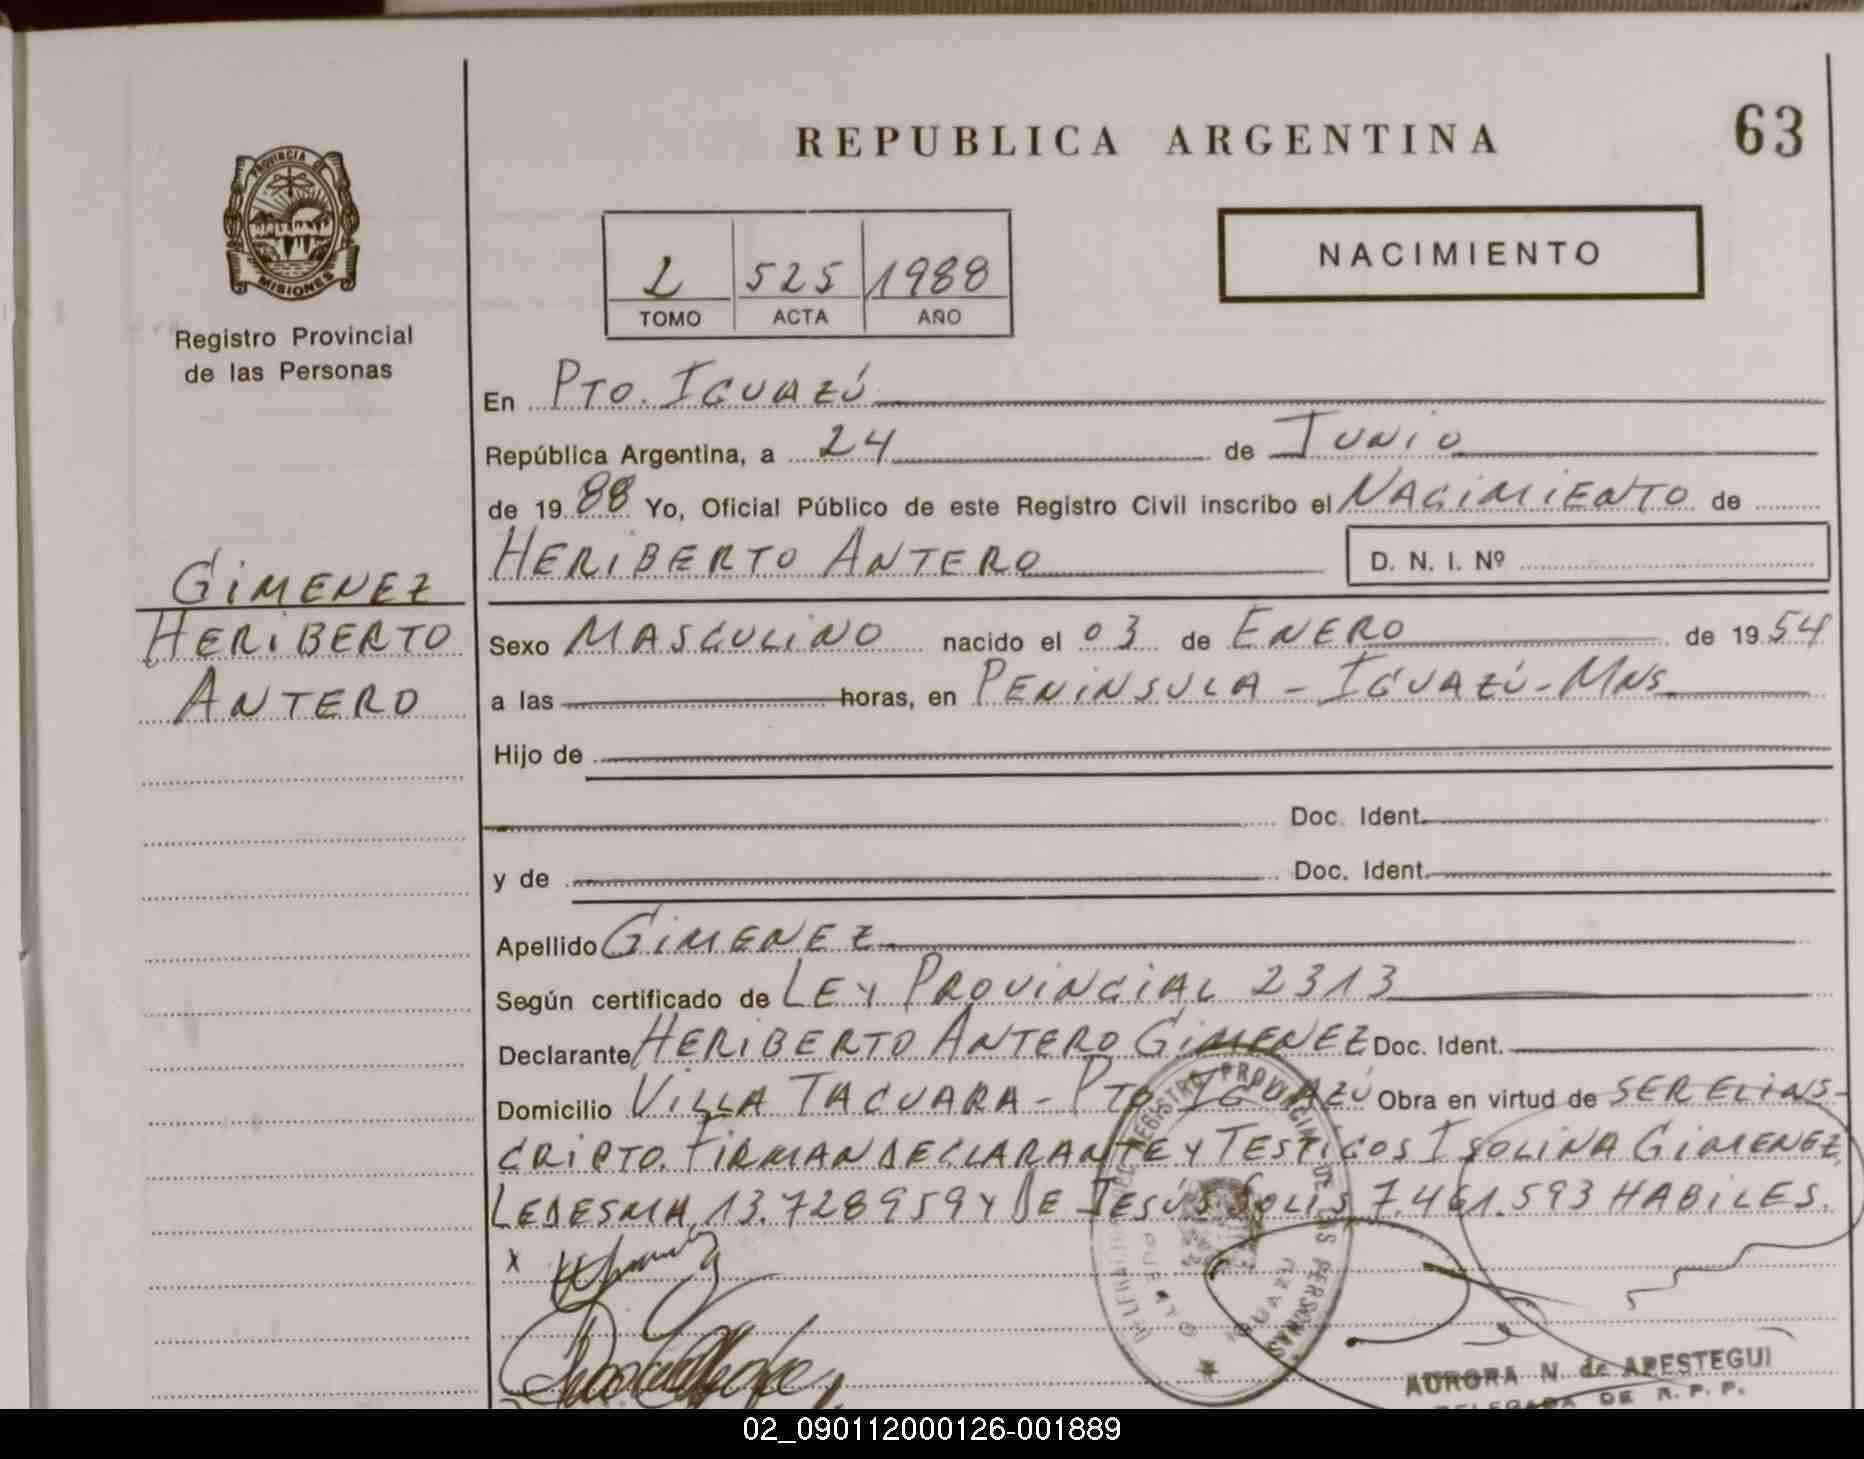 REPUBLICA ARGENTINA
63
PROVINCIA DE
MISIONES
Registro Provincial
de las Personas
2 525 1988
TOMO ACTA AÑO
NACIMIENTO
En PTO. IGUAZÚ
República Argentina, a 24 de JUNIO
de 1988 Yo, Oficial Público de este Registro Civil inscribo el NACIMIENTO de
HERIBERTO ANTERO D. N. I. Nº
GIMENEZ
HERIBERTO
ANTERO
Sexo MASCULINO nacido el 03 de ENERO de 1954
a las horas, en PENINSULA - IGUAZÚ - MNS
Hijo de
Doc. Ident.
y de Doc. Ident.
Apellido GIMENEZ
Según certificado de LEY PROVINCIAL 2313
Declarante HERIBERTO ANTERO GIMENEZ Doc. Ident.
Domicilio VILLA TACUARA - PTO IGUAZÚ Obra en virtud de SER EL INS-
CRIPTO. FIRMAN DECLARANTE Y TESTIGOS ISOLINA GIMENEZ
LEDESMA 13.728959 Y DE JESÚS SOLIS 7.461.593 HABILES.
x
REGISTRO PROVINCIAL DE LAS PERSONAS
AURORA N. de APESTEGUI
DELEGADA DE R. P. P.
02_090112000126-001889